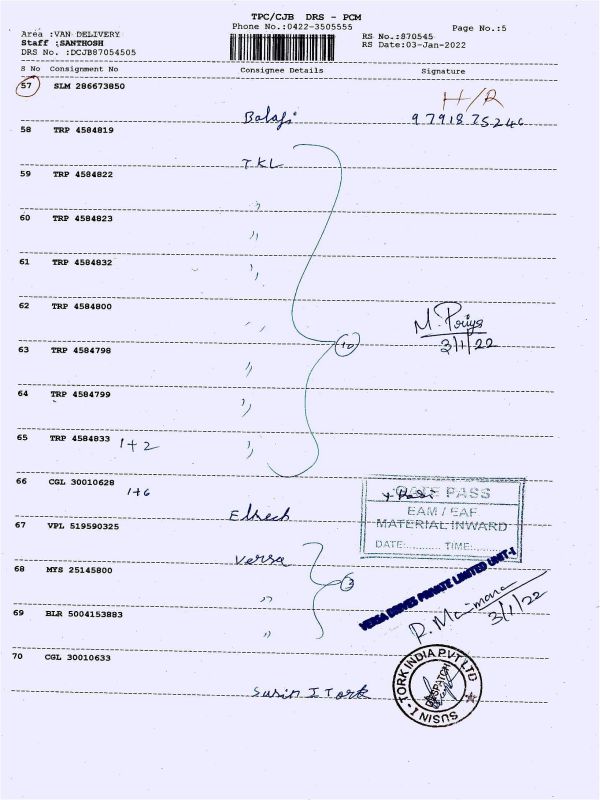 TPC/CJB DRS - PCM
Phone No.:0422-3505555
Page No.:5
Area :VAN DELIVERY
Staff :SANTHOSH
DRS No. :DCJB87054505
RS No.:870545
RS Date:03-Jan-2022
S No Consignment No Consignee Details Signature
57 SLM 286673850
H/R
Balaji 9791875246
58 TRP 4584819
TKL
59 TRP 4584822
"
60 TRP 4584823
"
61 TRP 4584832
"
62 TRP 4584800
"
M. Priya
10
3/1/22
63 TRP 4584798
"
64 TRP 4584799
"
65 TRP 4584833 1+2
"
66 CGL 30010628
1+6
GATE PASS
EAM / EAF
MATERIAL INWARD
DATE:.......... TIME:..........
67 VPL 519590325
Versa
68 MTS 25145800
3
"
VERSA DRIVES PRIVATE LIMITED UNIT-1
3/1/22
69 BLR 5004153883
"
70 CGL 30010633
Susin I Tork
SUSIN I - TORK INDIA PVT LTD
DISPATCH